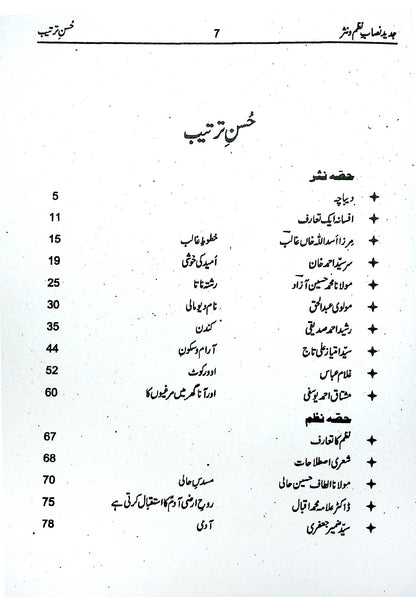 جدید نصاب نظم و نثر 7 حُسنِ ترتیب
حُسنِ ترتیب
حصہ نثر
دیباچہ 5
افسانہ ایک تعارف 11
مرزا اسد اللہ خاں غالب خطوطِ غالب 15
سر سیّد احمد خان اُمید کی خوشی 19
مولانا محمد حسین آزاد رشتہ ناتا 25
مولوی عبدالحق نام دیو مالی 30
رشید احمد صدیقی کندن 35
سیّد امتیاز علی تاج آرام و سکون 44
غلام عباس اوورکوٹ 52
مشتاق احمد یوسفی اور آنا گھر میں مرغیوں کا 60
حصہ نظم
نظم کا تعارف 67
شعری اصطلاحات 68
مولانا الطاف حسین حالی مسدسِ حالی 70
ڈاکٹر علامہ محمد اقبال روحِ ارضی آدم کا استقبال کرتی ہے 75
سیّد ضمیر جعفری آدمی 78